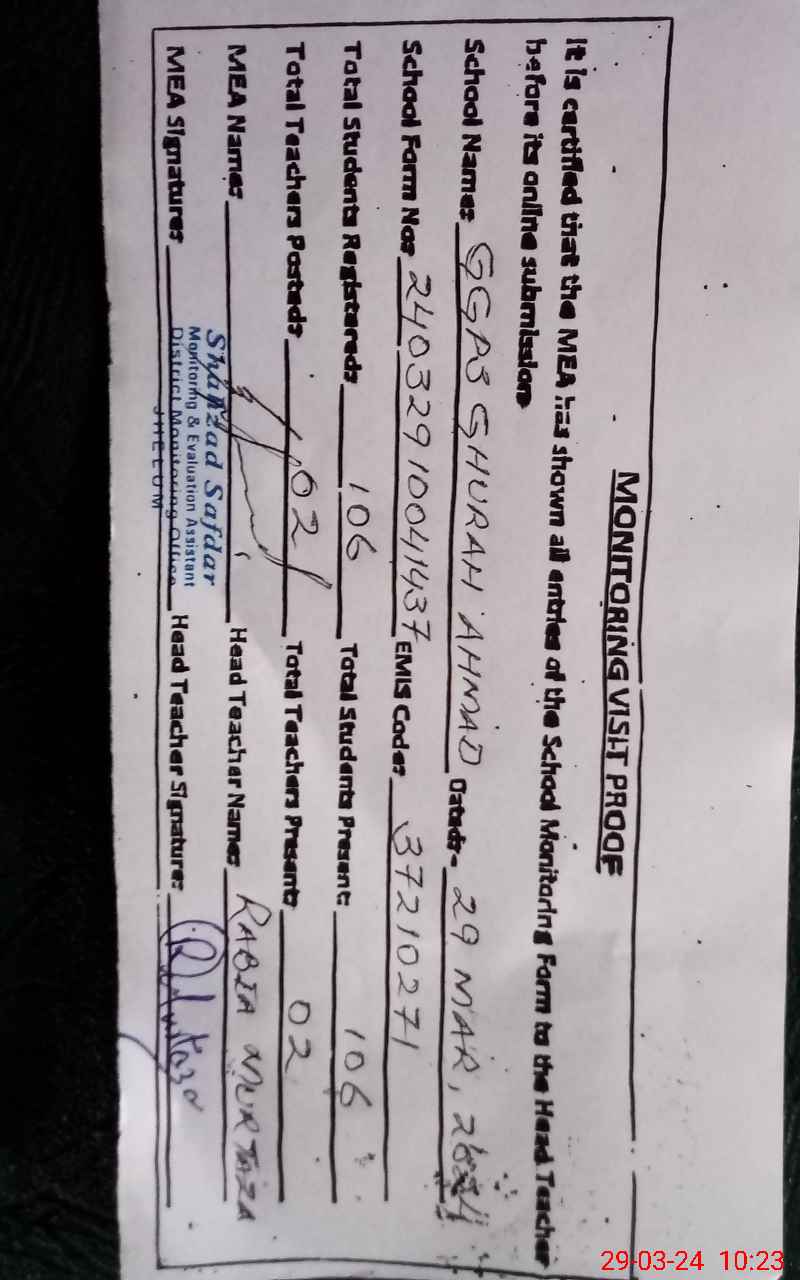 MONITORING VISIT PROOF
It is certified that the MEA has shown all entries of the School Monitoring Form to the Head Teacher
before its online submission.
School Name: GGPS GHURAH AHMAD Dated:- 29 MAR, 2024
School Form No: 2403291004 1437 EMIS Code: 37210271
Total Students Registered: 106 Total Students Present: 106
Total Teachers Posted: 02 Total Teachers Present: 02
MEA Name: Head Teacher Name: RABIA MURTAZA
MEA Signature: Head Teacher Signature:
Shahzad Safdar
Monitoring & Evaluation Assistant
District Monitoring Office
JHELUM
29-03-24 10:23